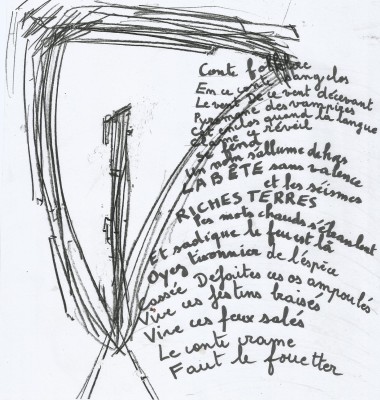 Conte
En ce conte sanglos
Le vent ce vent décevant
des vampires
enclos quand la langue
réveil
un nom s'allume dehors
LA BÊTE sans valence
et les séismes
RICHES TERRES
Les mots chauds
Et rustique le feu est là
Oyez de l'espèce
Cassée Defaites ces os ampoulés
Vive ces festins braisés
Vive ces feux salés
Le conte rame
Faut le fouetter